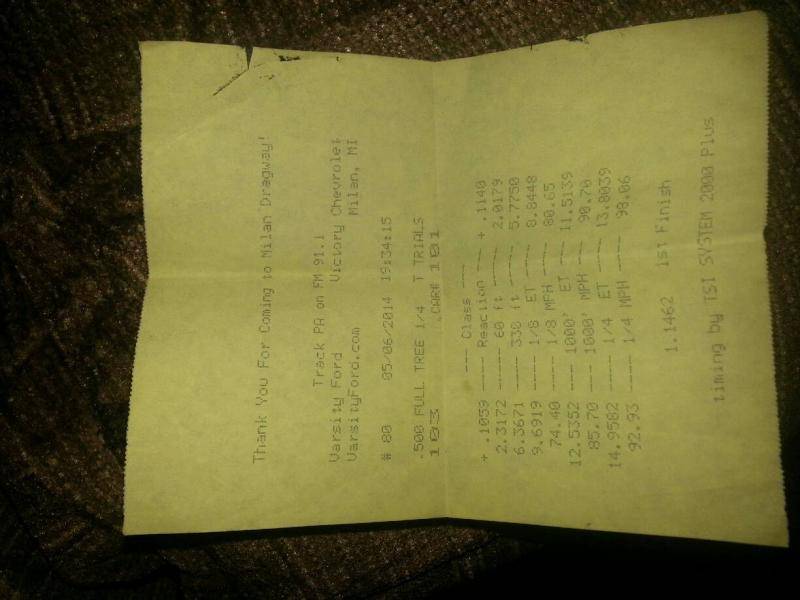 Thank You For Coming to Milan Dragway!
Track PA on FM 91.1
Varsity Ford Victory Chevrolet
VarsityFord.com Milan, MI
# 80 05/06/2014 19:34:15
.500 FULL TREE 1/4 T TRIALS
103 CAR# 101
--- Class ---
+ .1059 ---- Reaction --- + .1140
2.3172 ---- 60 ft ---- 2.0179
6.3671 ---- 330 ft ---- 5.7750
9.6919 ---- 1/8 ET ---- 8.8448
74.40 ---- 1/8 MPH ---- 80.65
12.5352 ---- 1000' ET ---- 11.5139
85.70 ---- 1000' MPH ---- 90.70
14.9582 ---- 1/4 ET ---- 13.8039
92.93 ---- 1/4 MPH ---- 98.06
1.1462 1st Finish
timing by TSI SYSTEM 2000 Plus